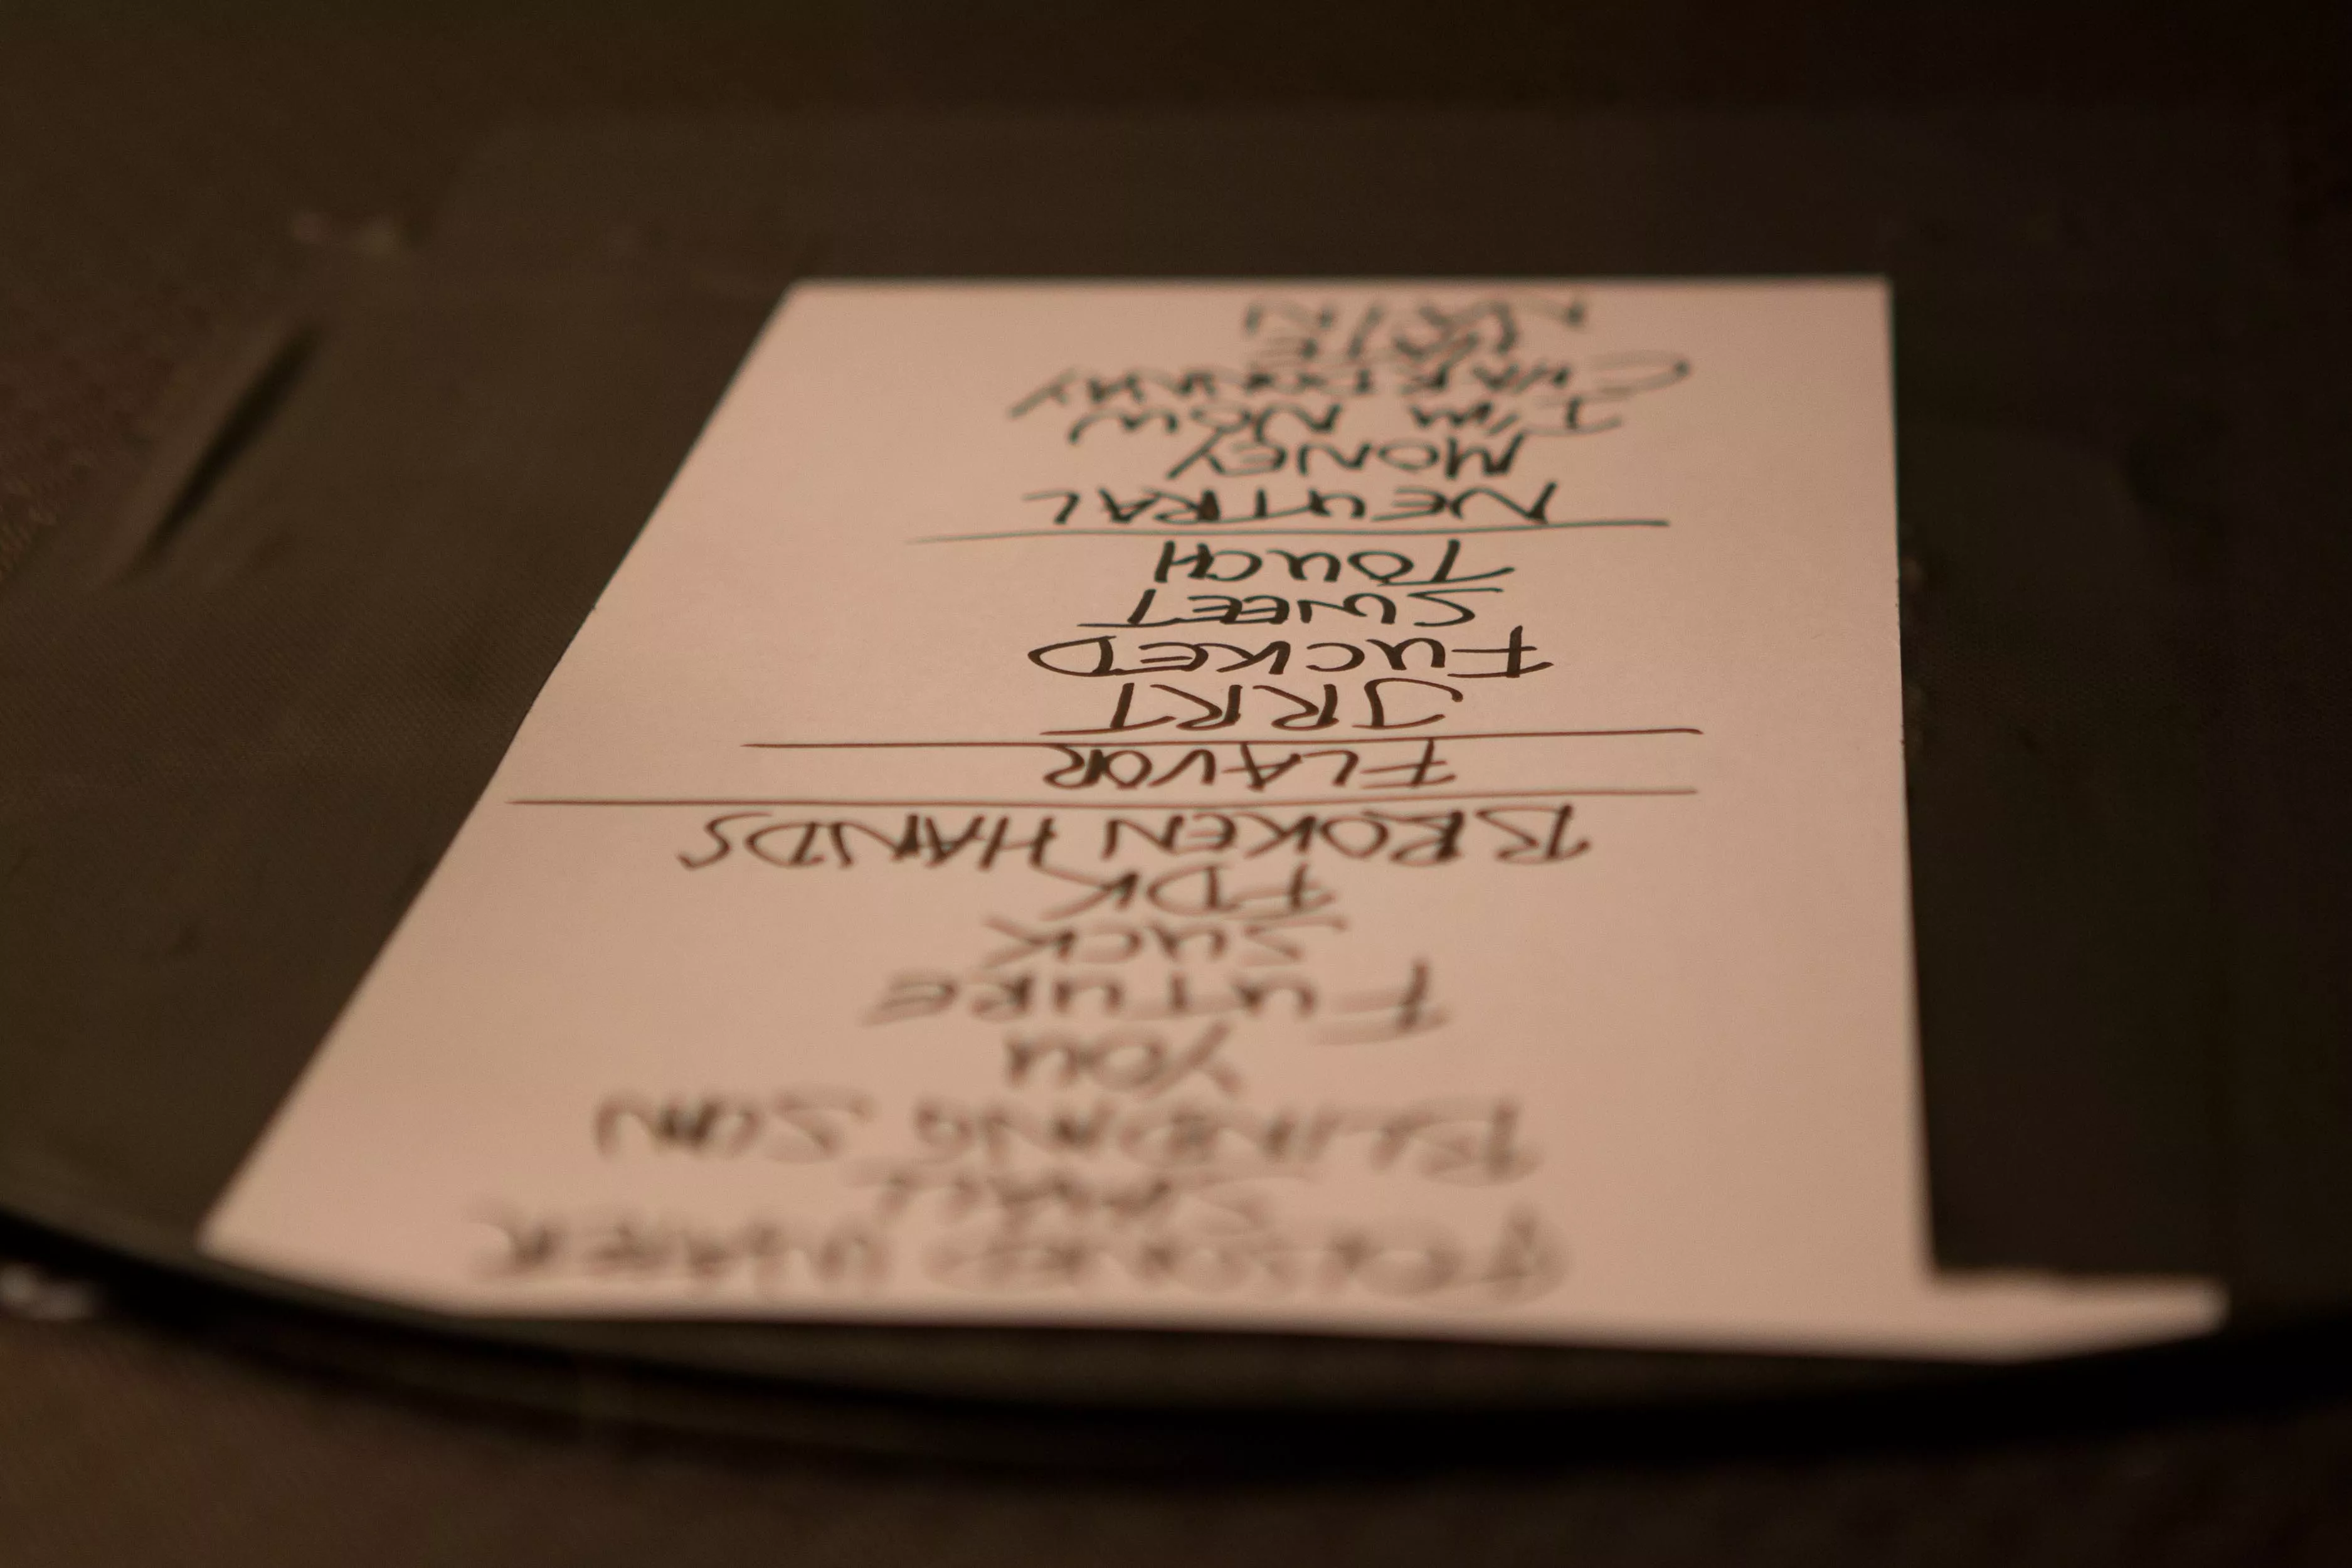 POISONED WATER
BLINDING SUN
YOU
FUTURE
SUCK
FDK
BROKEN HANDS
FLAVOR
JRRT
FUCKED
SWEET
TOUCH
NEUTRAL
MONEY
I'M NOW
CHARDONNAY